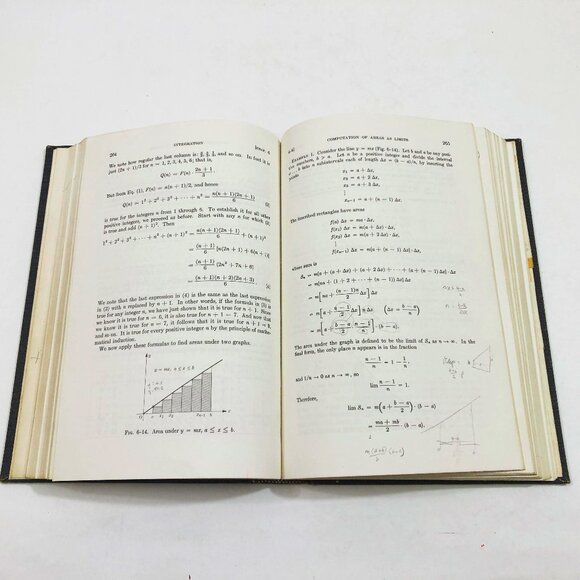 204
INTEGRATION
We note how regular the last column is: and so on. In fact it is
just (2n + 1)/3 for n = 1, 2, 3, 4, 5, 6; that is,
Q(n) = F(n) · (2n + 1)/3
But from Eq. (1), F(n) = n(n + 1)/2, and hence
Q(n) = 1² + 2² + 3² + ··· + n² = n(n + 1)(2n + 1)/6 (3)
is true for the integers n from 1 through 6. To establish it for all other
positive integers, we proceed as before. Start with any n for which (3)
is true and add (n + 1)². Then
1² + 2² + 3² + ··· + n² + (n + 1)² = n(n + 1)(2n + 1)/6 + (n + 1)²
= (n + 1)/6 [n(2n + 1) + 6(n + 1)]
= (n + 1)/6 (2n² + 7n + 6)
= (n + 1)(n + 2)(2n + 3)/6 (4)
We note that the last expression in (4) is the same as the last expression
in (3) with n replaced by n + 1. In other words, if the formula in (3) is
true for any integer n, we have just shown that it is true for n + 1. Since
we know it is true for n = 6, it is also true for n + 1 = 7. And now that
we know it is true for n = 7, it follows that it is true for n + 1 = 8,
and so on. It is true for every positive integer n by the principle of mathe-
matical induction.
We now apply these formulas to find areas under two graphs.
y = mx, a ≤ x ≤ b
FIG. 6-14. Area under y = mx, a ≤ x ≤ b.
COMPUTATION OF AREAS AS LIMITS
205
EXAMPLE 1. Consider the line y = mx (Fig. 6-14). Let b and a be any posi-
tive numbers, b > a. Let n be a positive integer and divide the interval
into n subintervals each of length Δx = (b − a)/n, by inserting the
points
x₁ = a + Δx,
x₂ = a + 2 Δx,
x₃ = a + 3 Δx,
⋮
xₙ₋₁ = a + (n − 1) Δx.
The inscribed rectangles have areas
f(a) Δx = ma · Δx,
f(x₁) Δx = m(a + Δx) · Δx,
f(x₂) Δx = m(a + 2 Δx) · Δx,
⋮
f(xₙ₋₁) Δx = m(a + (n − 1) Δx) · Δx,
whose sum is
Sₙ = m(a + (a + Δx) + (a + 2 Δx) + ··· + (a + (n − 1) Δx) · Δx
= m(na + (1 + 2 + ··· + (n − 1)) Δx) Δx
= m[na + (n − 1)n/2 Δx] Δx
= m[a + (n − 1)/2 Δx] n Δx (Δx = (b − a)/n)
= m[a + (b − a)/2 · (n − 1)/n] · (b − a).
The area under the graph is defined to be the limit of Sₙ as n → ∞. In the
final form, the only place n appears is in the fraction
(n − 1)/n = 1 − 1/n,
and 1/n → 0 as n → ∞, so
lim (n − 1)/n = 1.
Therefore,
lim Sₙ = m(a + (b − a)/2) · (b − a)
= (ma + mb)/2 · (b − a).